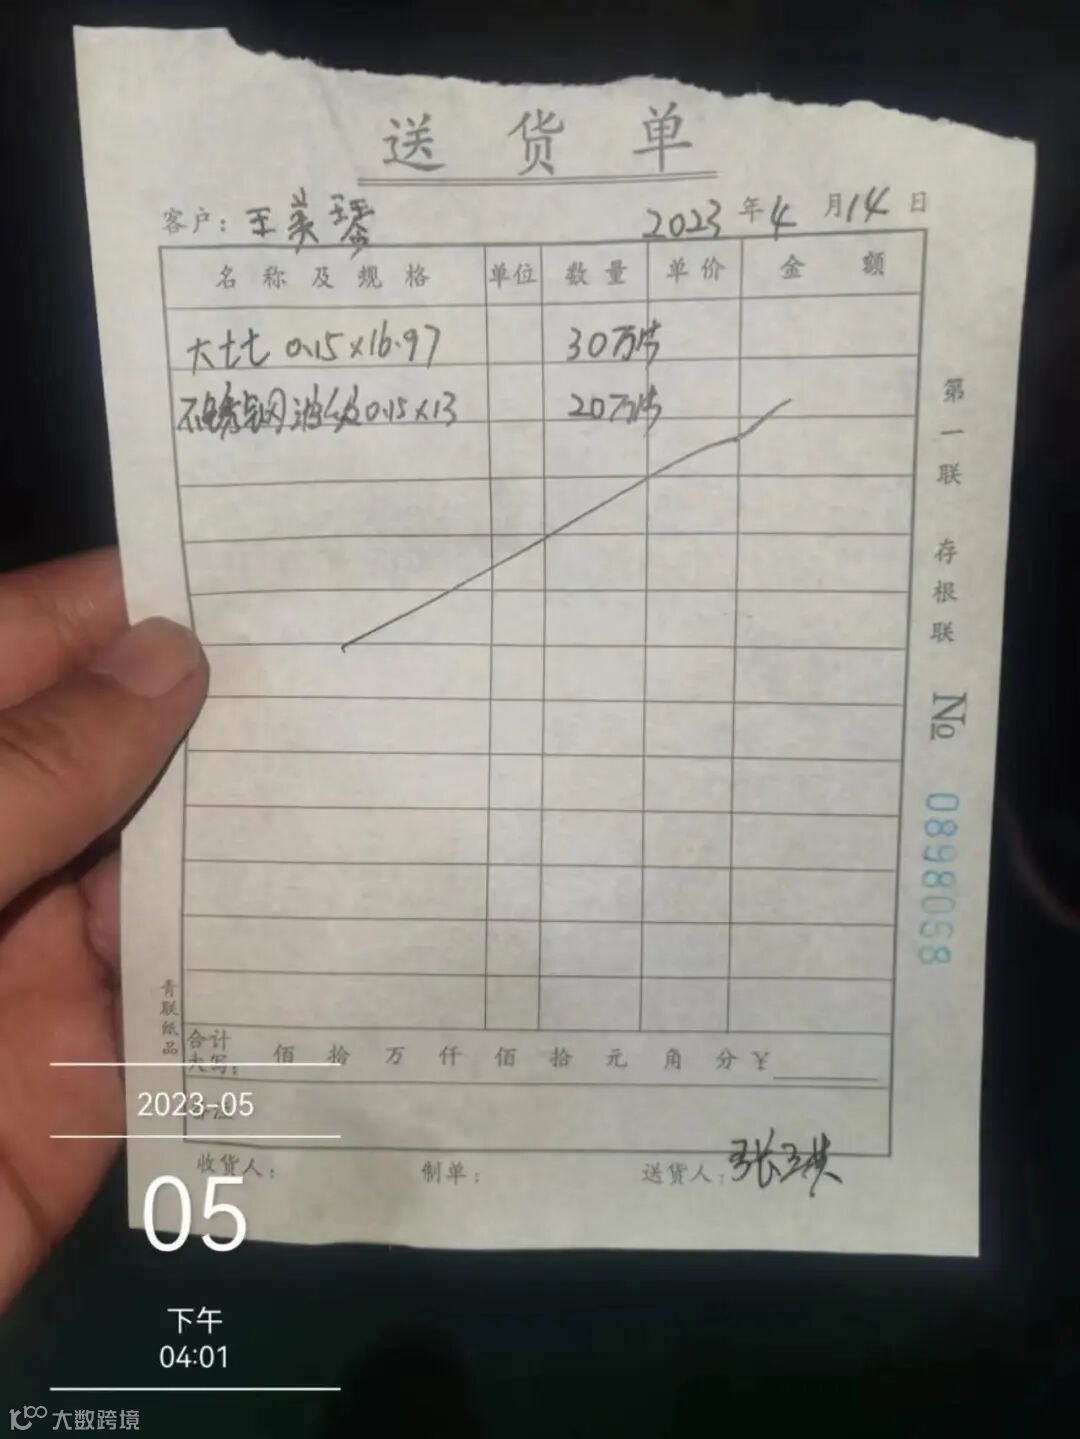 送货单
客户：王美琴 2023年4月14日
名称及规格 单位 数量 单价 金额
大七七 0.15×16.97 30万片
不锈钢 0.15×13 20万片
第一联 存根联 № 0898068
青联纸品
合计大写： 佰 拾 万 仟 佰 拾 元 角 分 ¥
备注
收货人： 制单： 送货人：张玉琪
2023-05
05
下午
04:01
大数跨境